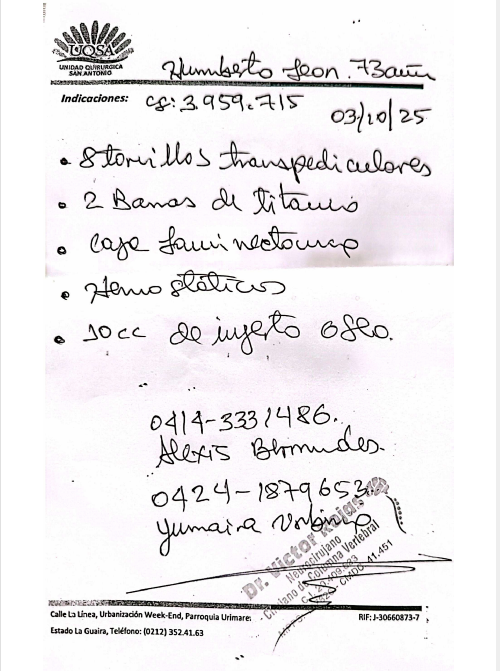 UQSA
UNIDAD QUIRURGICA
SAN ANTONIO
Humberto Leon. 73 años
Indicaciones: CI: 3.959.715
03/10/25
• 8 tornillos transpediculares
• 2 Barras de titanio
• Caja laminectomia
• Hemostáticos
• 10cc de injerto oseo.
0414-3331486.
Alexis Bermudes.
0424-1879653
Yumaira
Dr. Victor Rojas
Neurocirujano
Cirujano de Columna Vertebral
11.451
Calle La Línea, Urbanización Week-End, Parroquia Urimare
RIF: J-30660873-7
Estado La Guaira, Teléfono: (0212) 352.41.63